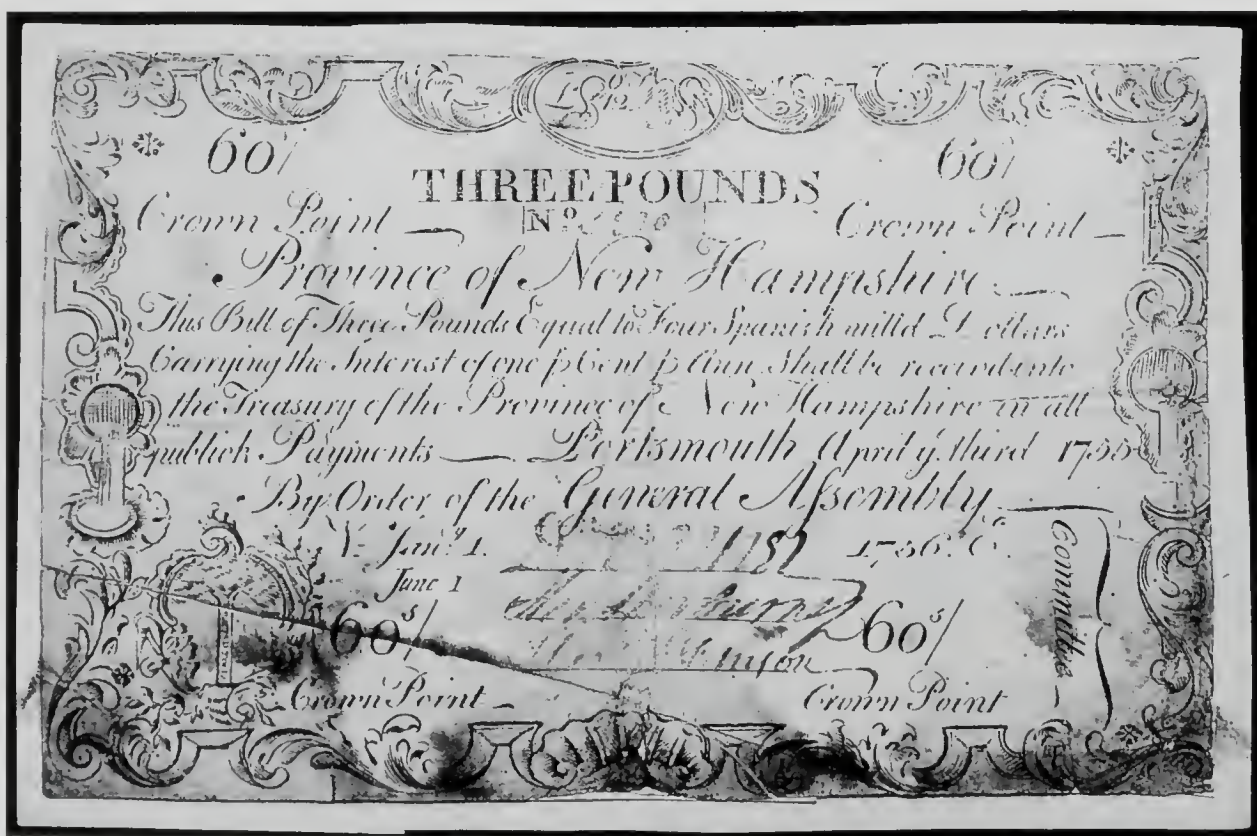 60/ 60/
THREE POUNDS
Crown Point No. Crown Point
Province of New Hampshire
This Bill of Three Pounds Equal to Four Spanish mill'd Dollars
Carrying the Interest of one p Cent p Ann Shall be received into
the Treasury of the Province of New Hampshire in all
publick Payments Portsmouth April ye third 1755
By Order of the General Assembly
Jany. 1. 1756
June 1
60s/ 60s/
Committee
Crown Point Crown Point